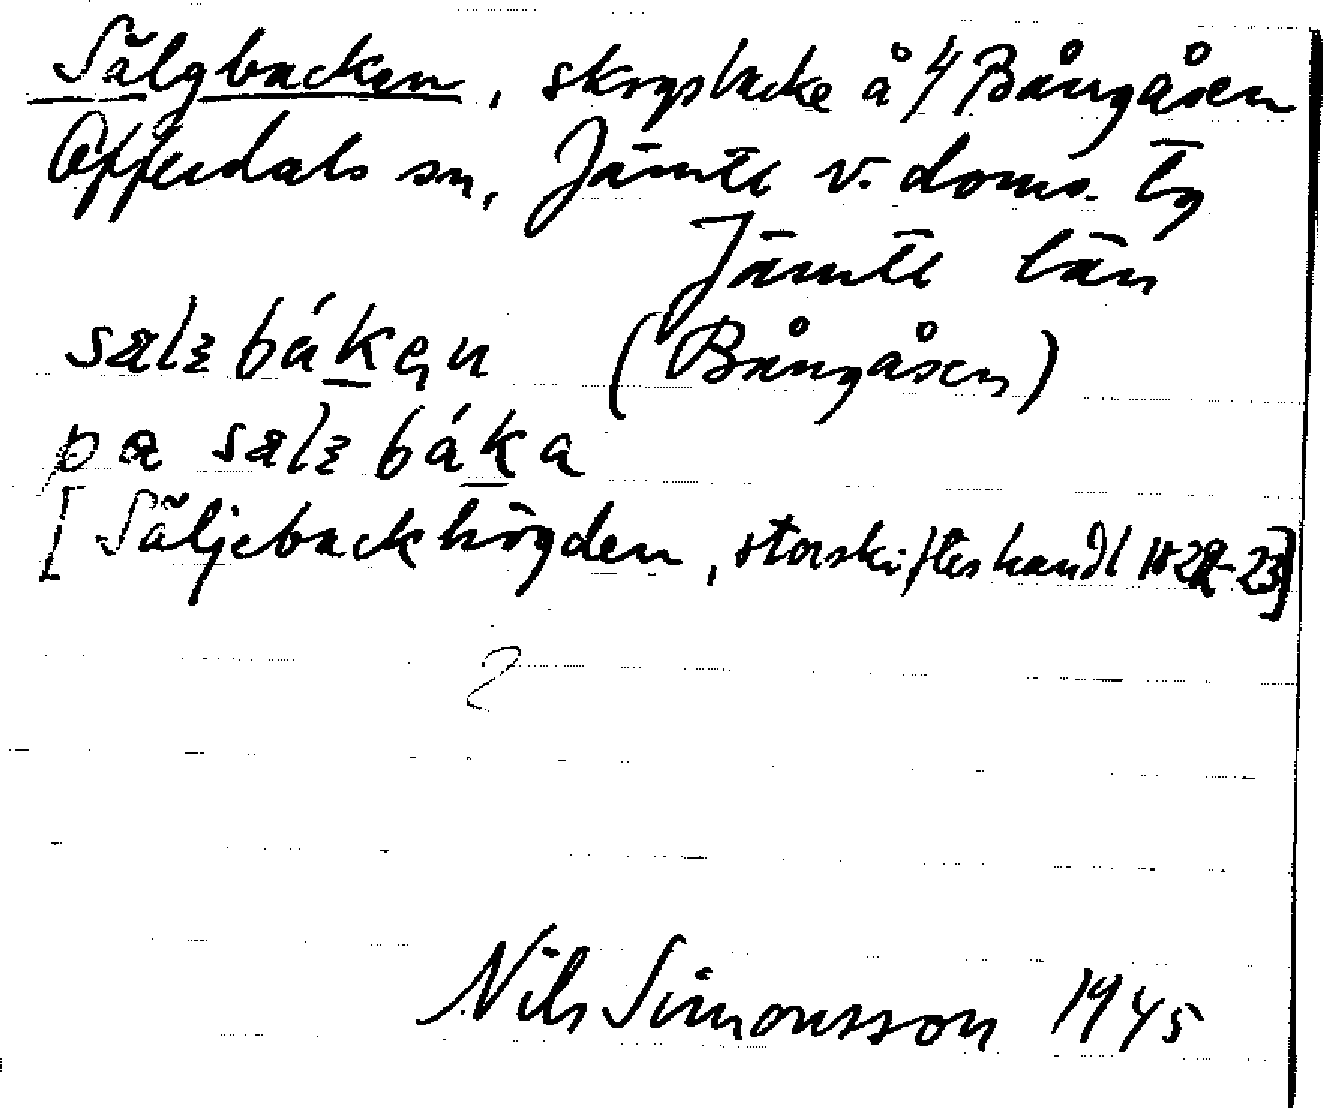 Sälgbacken, skogsbacke å 4 Bångåsen
Offerdals sn, Jämtl v. doms. tg
Jämtl län
sælʒbákẹn (Bångåsen)
pa sælʒbáka
[Säljebackhögden, storskifteshandl 1822-23]
2
Nils Simonsson 1945